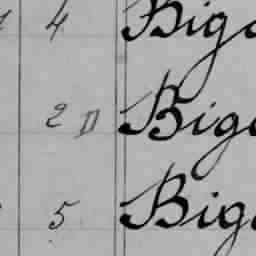 4 Big
2 D Big
5 Big